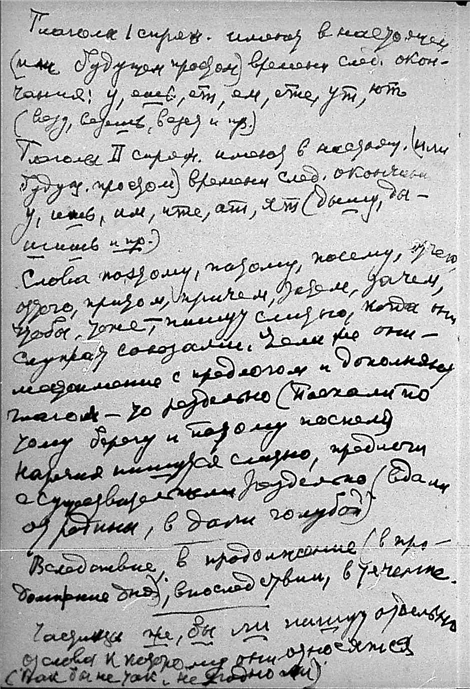 Глаголы I спряж. имеют в настоящем
(или будущем простом) времени след. окон-
чания: у, ешь, ет, ем, ете, ут, ют
(везу, везешь, везет и пр.)
Глаголы II спряж. имеют в настоящ. (или
будущ. простом) времени след. окончания
у, ишь, им, ите, ат, ят (дышу, ды-
шишь и пр.)
Слова поэтому, потому, посему,
отчего, притом, причем, затем, зачем,
чтобы, тоже – пишут слитно, когда они
служат союзами. Если же они –
местоимение с предлогом и дополняют
глагол – то раздельно (Поехали по
тому берегу и потому поспели)
Наречия пишутся слитно, предлоги
с существительными раздельно (вдали
от родины, в дали голубой)
Вследствие, в продолжение (в про-
должение дня), впоследствии, в течение.
Частицы же, бы ли пишут отдельно
от слова к которому они относятся
(Как бы не так, не угодно ли)